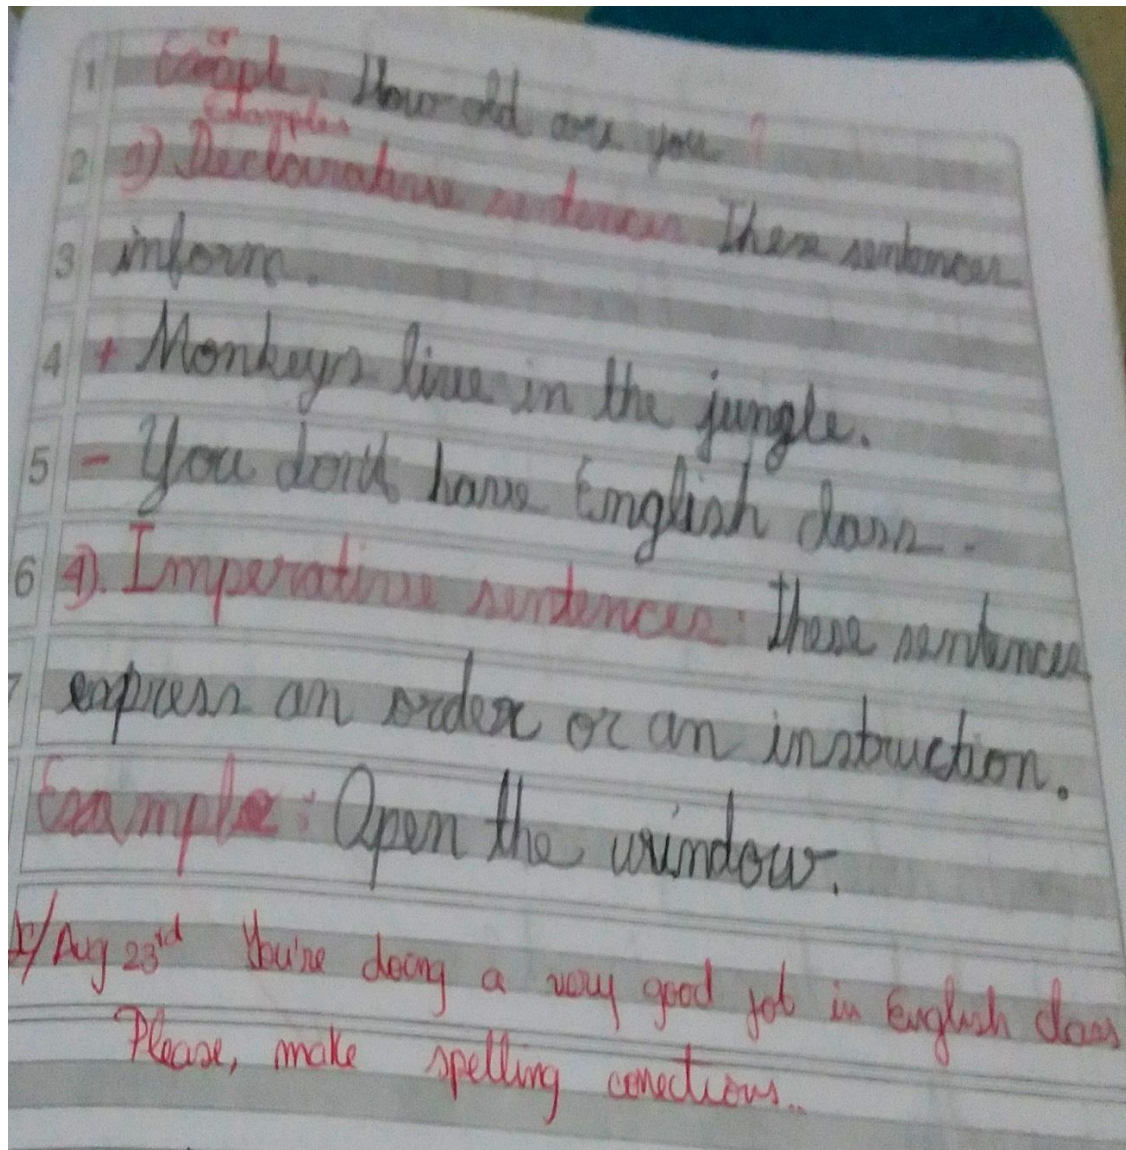 1 Example: How old are you ?
Examples
2 3) Declarative sentences These sentences
3 inform.
4 + Monkeys live in the jungle.
5 - You don't have English class.
6 4). Imperative sentences: These sentences
7 express an order or an instruction.
Example: Open the window.
Aug 23rd You're doing a very good job in English class
Please, make spelling corrections..